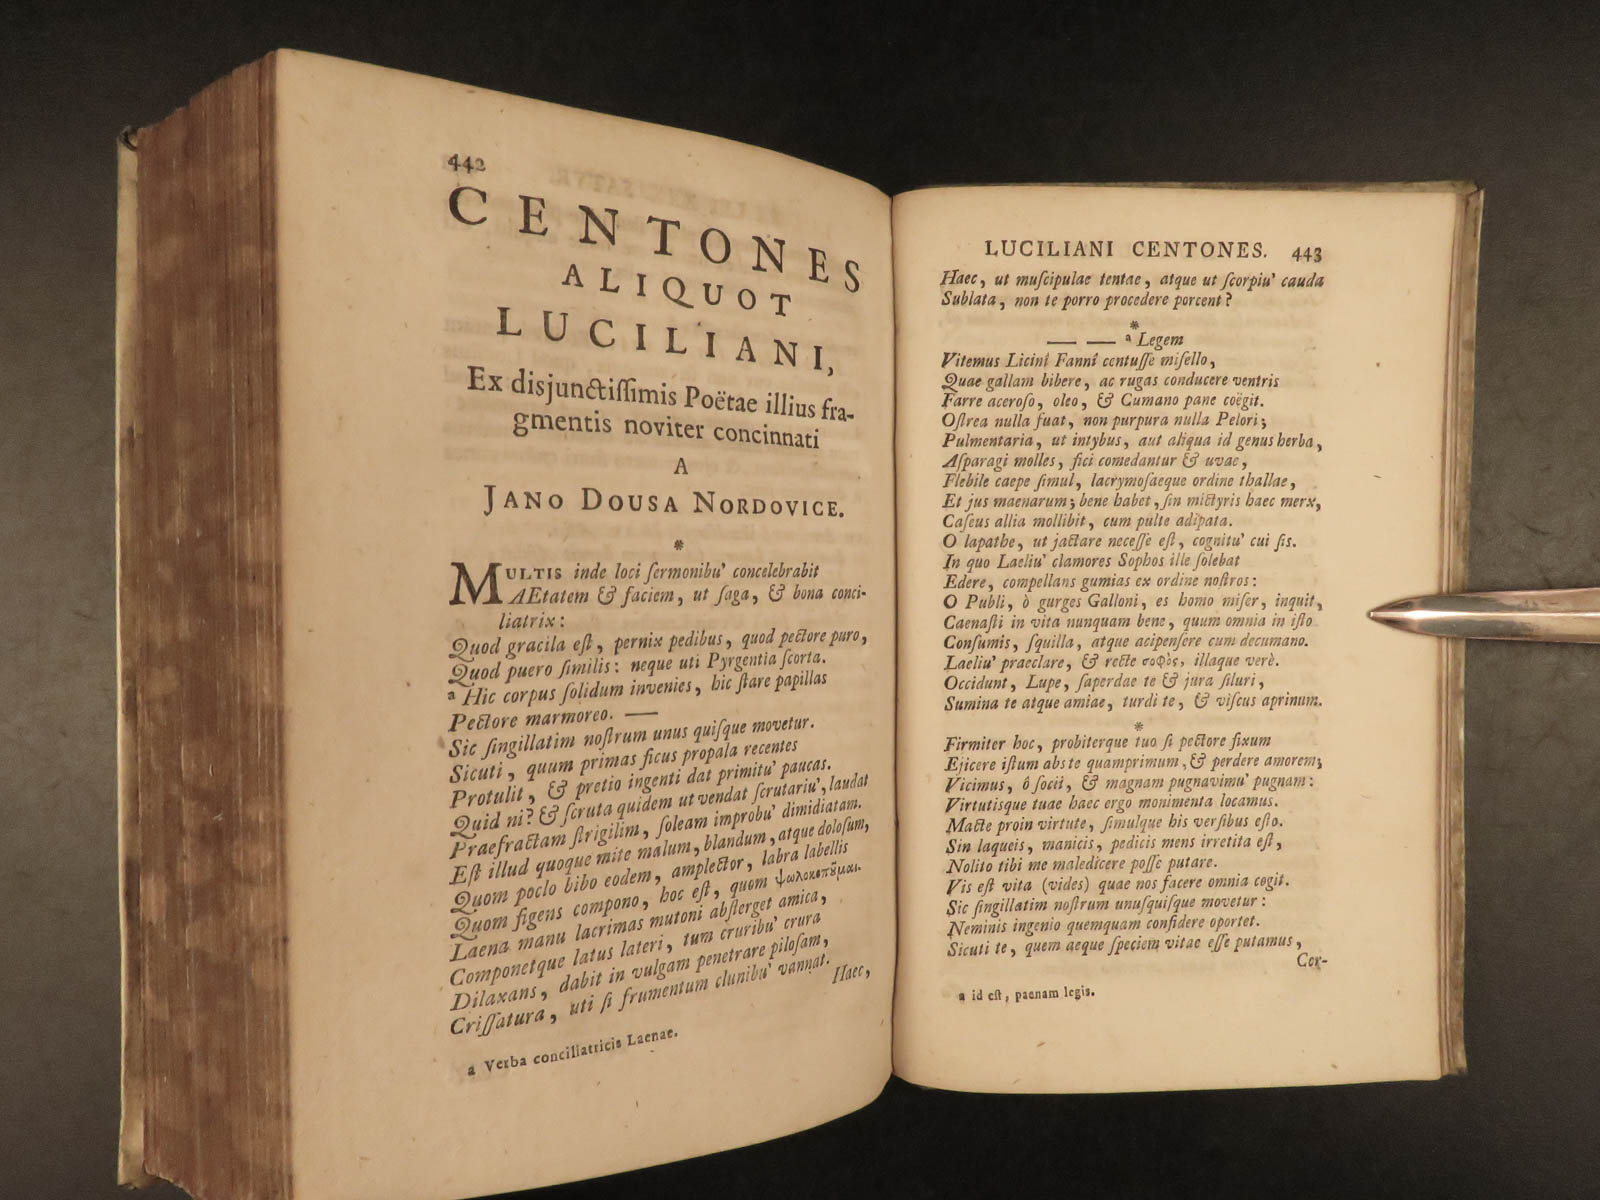 442
CENTONES
ALIQUOT
LUCILIANI,
Ex disjunctiſſimis Poëtae illius fra-
gmentis noviter concinnati
A
JANO DOUSA NORDOVICE.
*
MULTIS inde loci ſermonibu' concelebrabit
AEtatem & faciem, ut ſaga, & bona conci-
liatrix:
Quod gracila eſt, pernix pedibus, quod pectore puro,
Quod puero ſimilis: neque uti Pyrgentia ſcorta.
a Hic corpus ſolidum invenies, hic ſtare papillas
Pectore marmoreo. —
Sic ſingillatim noſtrum unus quiſque movetur.
Sicuti, quum primas ficus propala recentes
Protulit, & pretio ingenti dat primitu' paucas.
Quid ni? & ſcruta quidem ut vendat ſcrutariu', laudat
Praefractam ſtrigilim, ſoleam improbu' dimidiatam.
Eſt illud quoque mite malum, blandum, atque doloſum,
Quom poclo bibo eodem, amplector, labra labellis
Quom figens compono, hoc eſt, quom ψωλοκοπῦμαι.
Laena manu lacrimas mutoni abſterget amica,
Componetque latus lateri, tum cruribu' crura
Dilaxans, dabit in vulgam penetrare piloſam,
Criſſatura, uti ſi frumentum clunibu' vannat.
Haec,
a Verba conciliatricis Laenae.
LUCILIANI CENTONES. 443
Haec, ut muſcipulae tentae, atque ut ſcorpiu' cauda
Sublata, non te porro procedere porcent?
*
— — a Legem
Vitemus Licinî Fannî centuſſe miſello,
Quae gallam bibere, ac rugas conducere ventris
Farre aceroſo, oleo, & Cumano pane coëgit.
Oſtrea nulla fuat, non purpura nulla Pelori;
Pulmentaria, ut intybus, aut aliqua id genus herba,
Aſparagi molles, fici comedantur & uvae,
Flebile caepe ſimul, lacrymoſaeque ordine thallae,
Et jus maenarum; bene habet, ſin mictyris haec merx,
Caſeus allia mollibit, cum pulte adipata.
O lapathe, ut jactare neceſſe eſt, cognitu' cui ſis.
In quo Laeliu' clamores Sophos ille ſolebat
Edere, compellans gumias ex ordine noſtros:
O Publi, ò gurges Galloni, es homo miſer, inquit,
Caenaſti in vita nunquam bene, quum omnia in iſto
Conſumis, ſquilla, atque acipenſere cum decumano.
Laeliu' praeclare, & recte σοφὸς, illaque verè.
Occidunt, Lupe, ſaperdae te & jura ſiluri,
Sumina te atque amiae, turdi te, & viſcus aprinum.
*
Firmiter hoc, probiterque tuo ſi pectore fixum
Ejicere iſtum abs te quamprimum, & perdere amorem;
Vicimus, ô ſocii, & magnam pugnavimu' pugnam:
Virtutisque tuae haec ergo monimenta locamus.
Macte proin virtute, ſimulque his verſibus eſto.
Sin laqueis, manicis, pedicis mens irretita eſt,
Nolito tibi me maledicere poſſe putare.
Vis eſt vita (vides) quae nos facere omnia cogit.
Sic ſingillatim noſtrum unuſquiſque movetur:
Neminis ingenio quemquam confidere oportet.
Sicuti te, quem aeque ſpeciem vitae eſſe putamus,
Cor-
a id eſt, paenam legis.